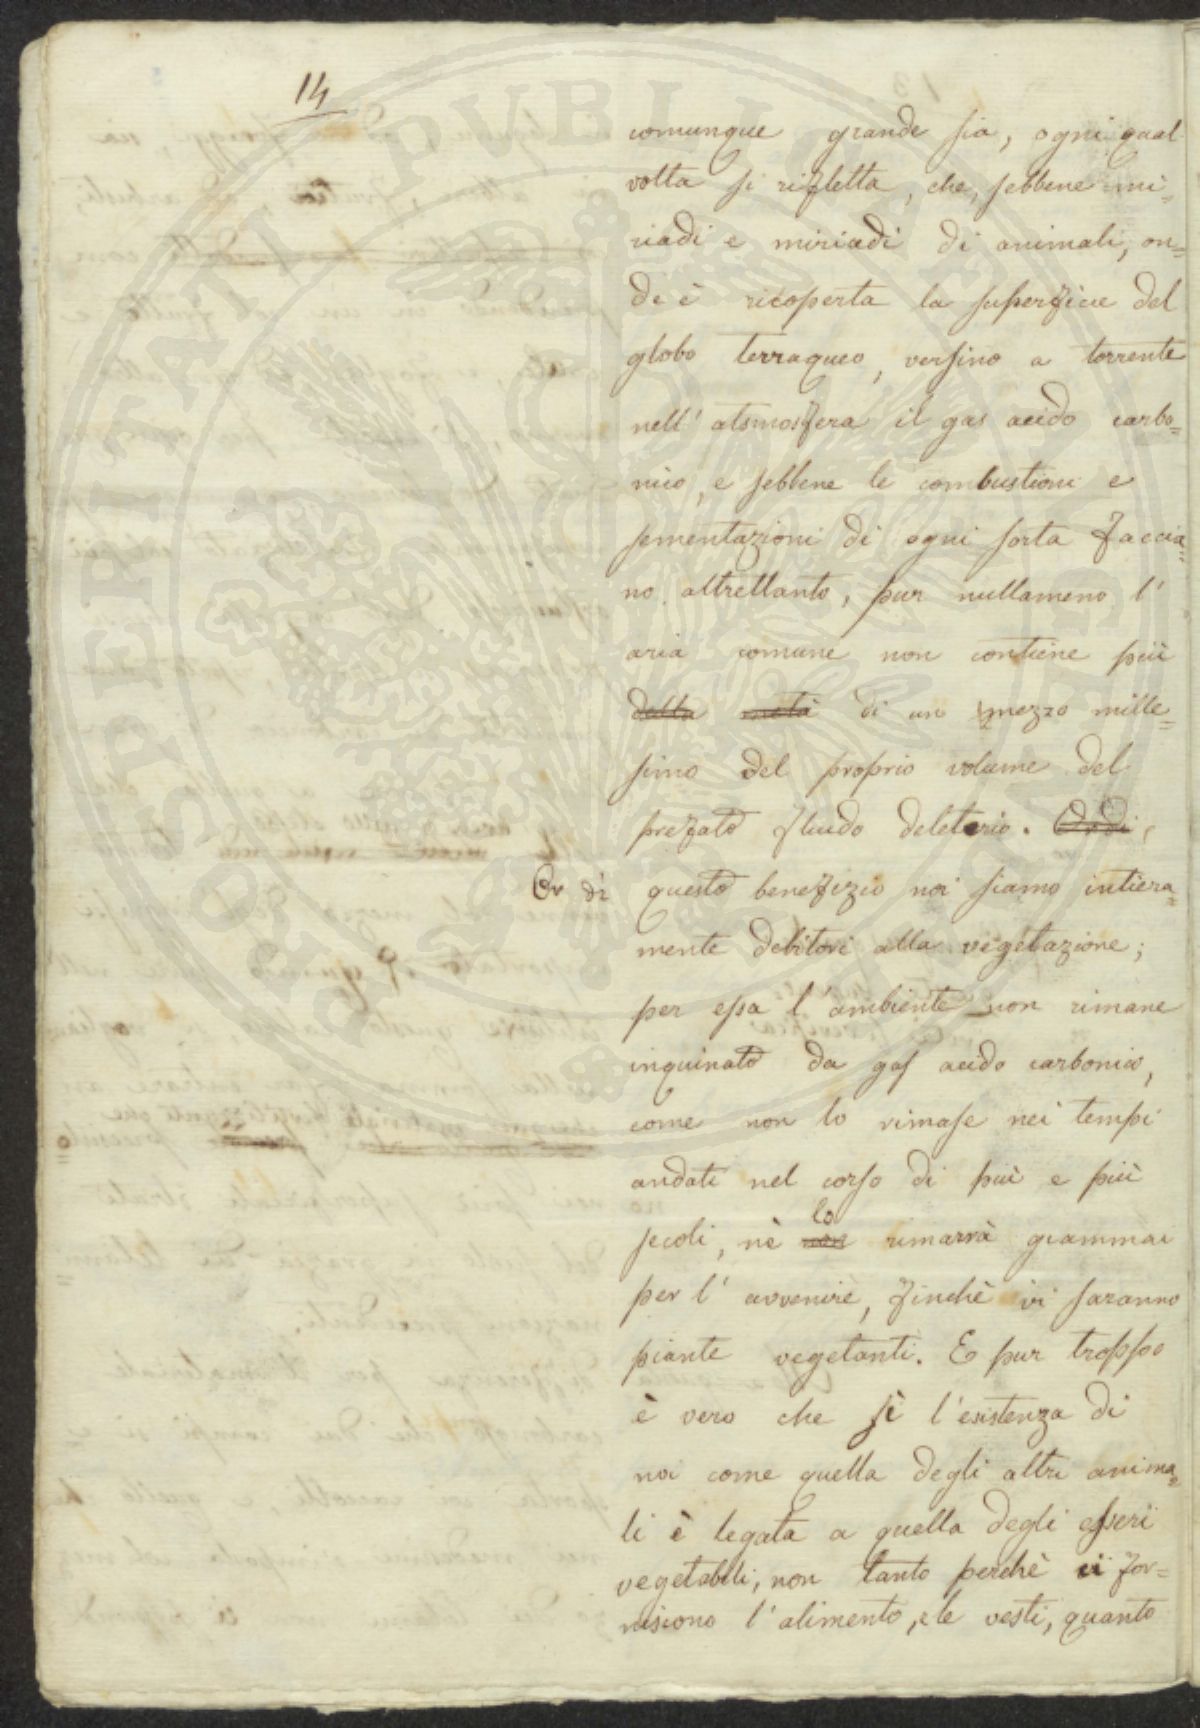 14
comunque grande sia, ogni qual
volta si rifletta, che, sebbene mi=
riadi e miriadi di animali, on=
de è ricoperta la superficie del
globo terraqueo, versino a torrente
nell' atsmosfera il gas acido carbo=
nico, e sebbene le combustioni e
fementazioni di ogni sorta faccia=
no altrettanto, pur nullameno l'
aria comune non contiene più
della metà di un mezzo mille=
simo del proprio volume del
prefato fluido deleterio. Or di,
Or di questo benefizio noi siamo intiera=
mente debitori alla vegetazione;
per essa l' ambiente non rimane
inquinato da gas acido carbonico,
come non lo rimase nei tempi
andati nel corso di più e più
lo
secoli, nè non rimarrà giammai
per l' avvenire, finchè vi saranno
piante vegetanti. E pur troppo
è vero che sè l'esistenza di
noi come quella degli altri anima=
li è legata a quella degli esseri
vegetabili, non tanto perchè ci for=
niscono l' alimento, e le vesti, quanto
PROSPERITATI PVBLICAE